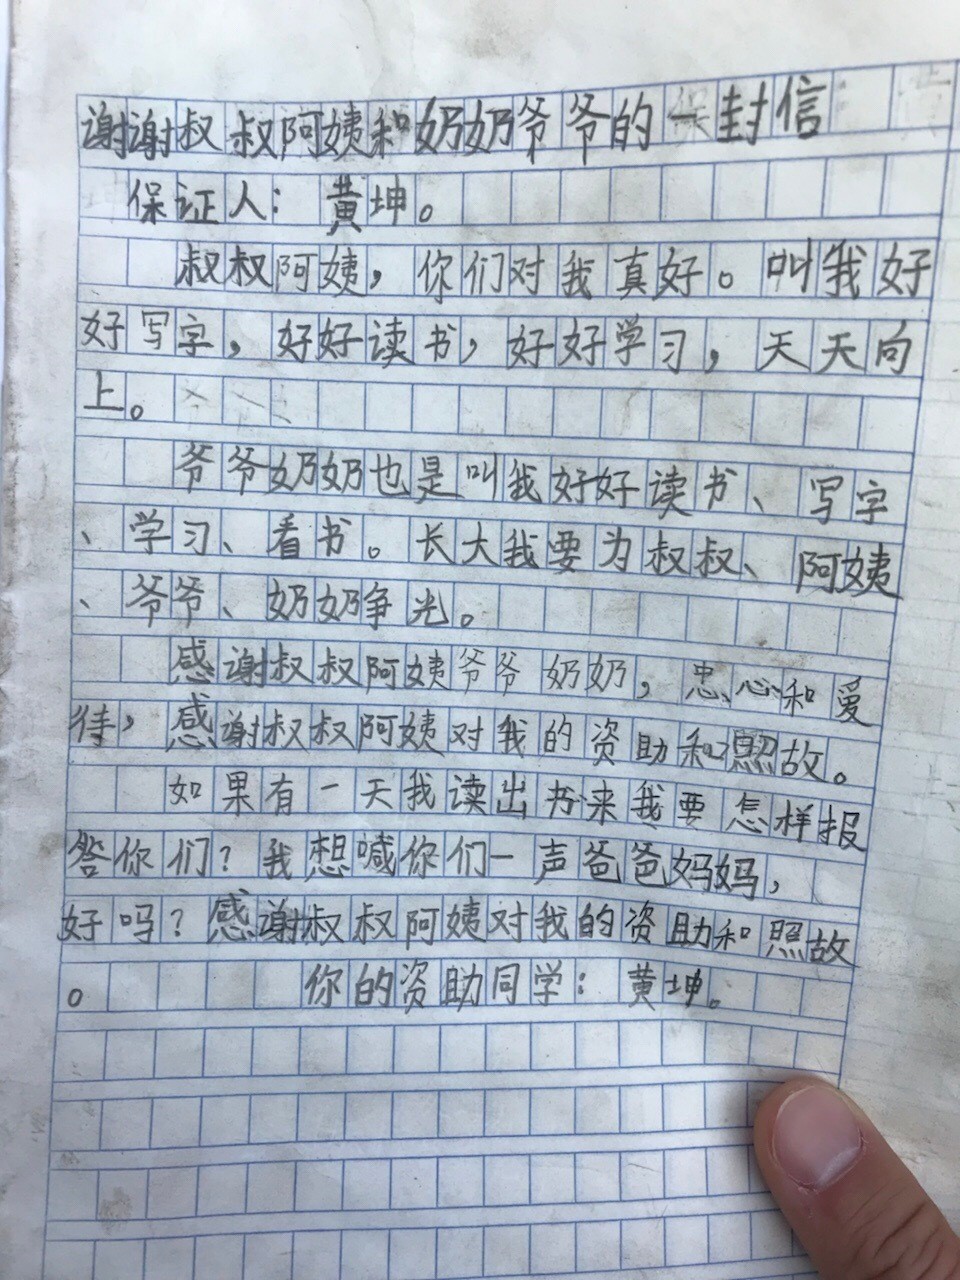 谢谢叔叔阿姨和奶奶爷爷的一封信
保证人：黄坤。
叔叔阿姨，你们对我真好。叫我好
好写字，好好读书，好好学习，天天向
上。
爷爷奶奶也是叫我好好读书、写字
、学习、看书。长大我要为叔叔、阿姨
、爷爷、奶奶争光。
感谢叔叔阿姨爷爷奶奶，忠心和爱
待，感谢叔叔阿姨对我的资助和照故。
如果有一天我读出书来我要怎样报
答你们？我想喊你们一声爸爸妈妈，
好吗？感谢叔叔阿姨对我的资助和照故
。 你的资助同学：黄坤。